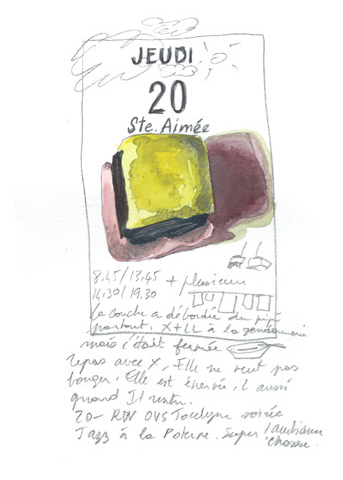 JEUDI
20
Ste. Aimée
8.45/13.45 + plusieurs
14.30/19.30
La couche a débordée du pipi
partout. X+LL à la gendarmerie
mais c'était fermée
Repas avec X, Elle ne veut pas
bouger. Elle est énervée, L aussi
quand Il rentre.
20- RDV OVS Jocelyne soirée
Jazz à la Poterne. Super l'ambiance